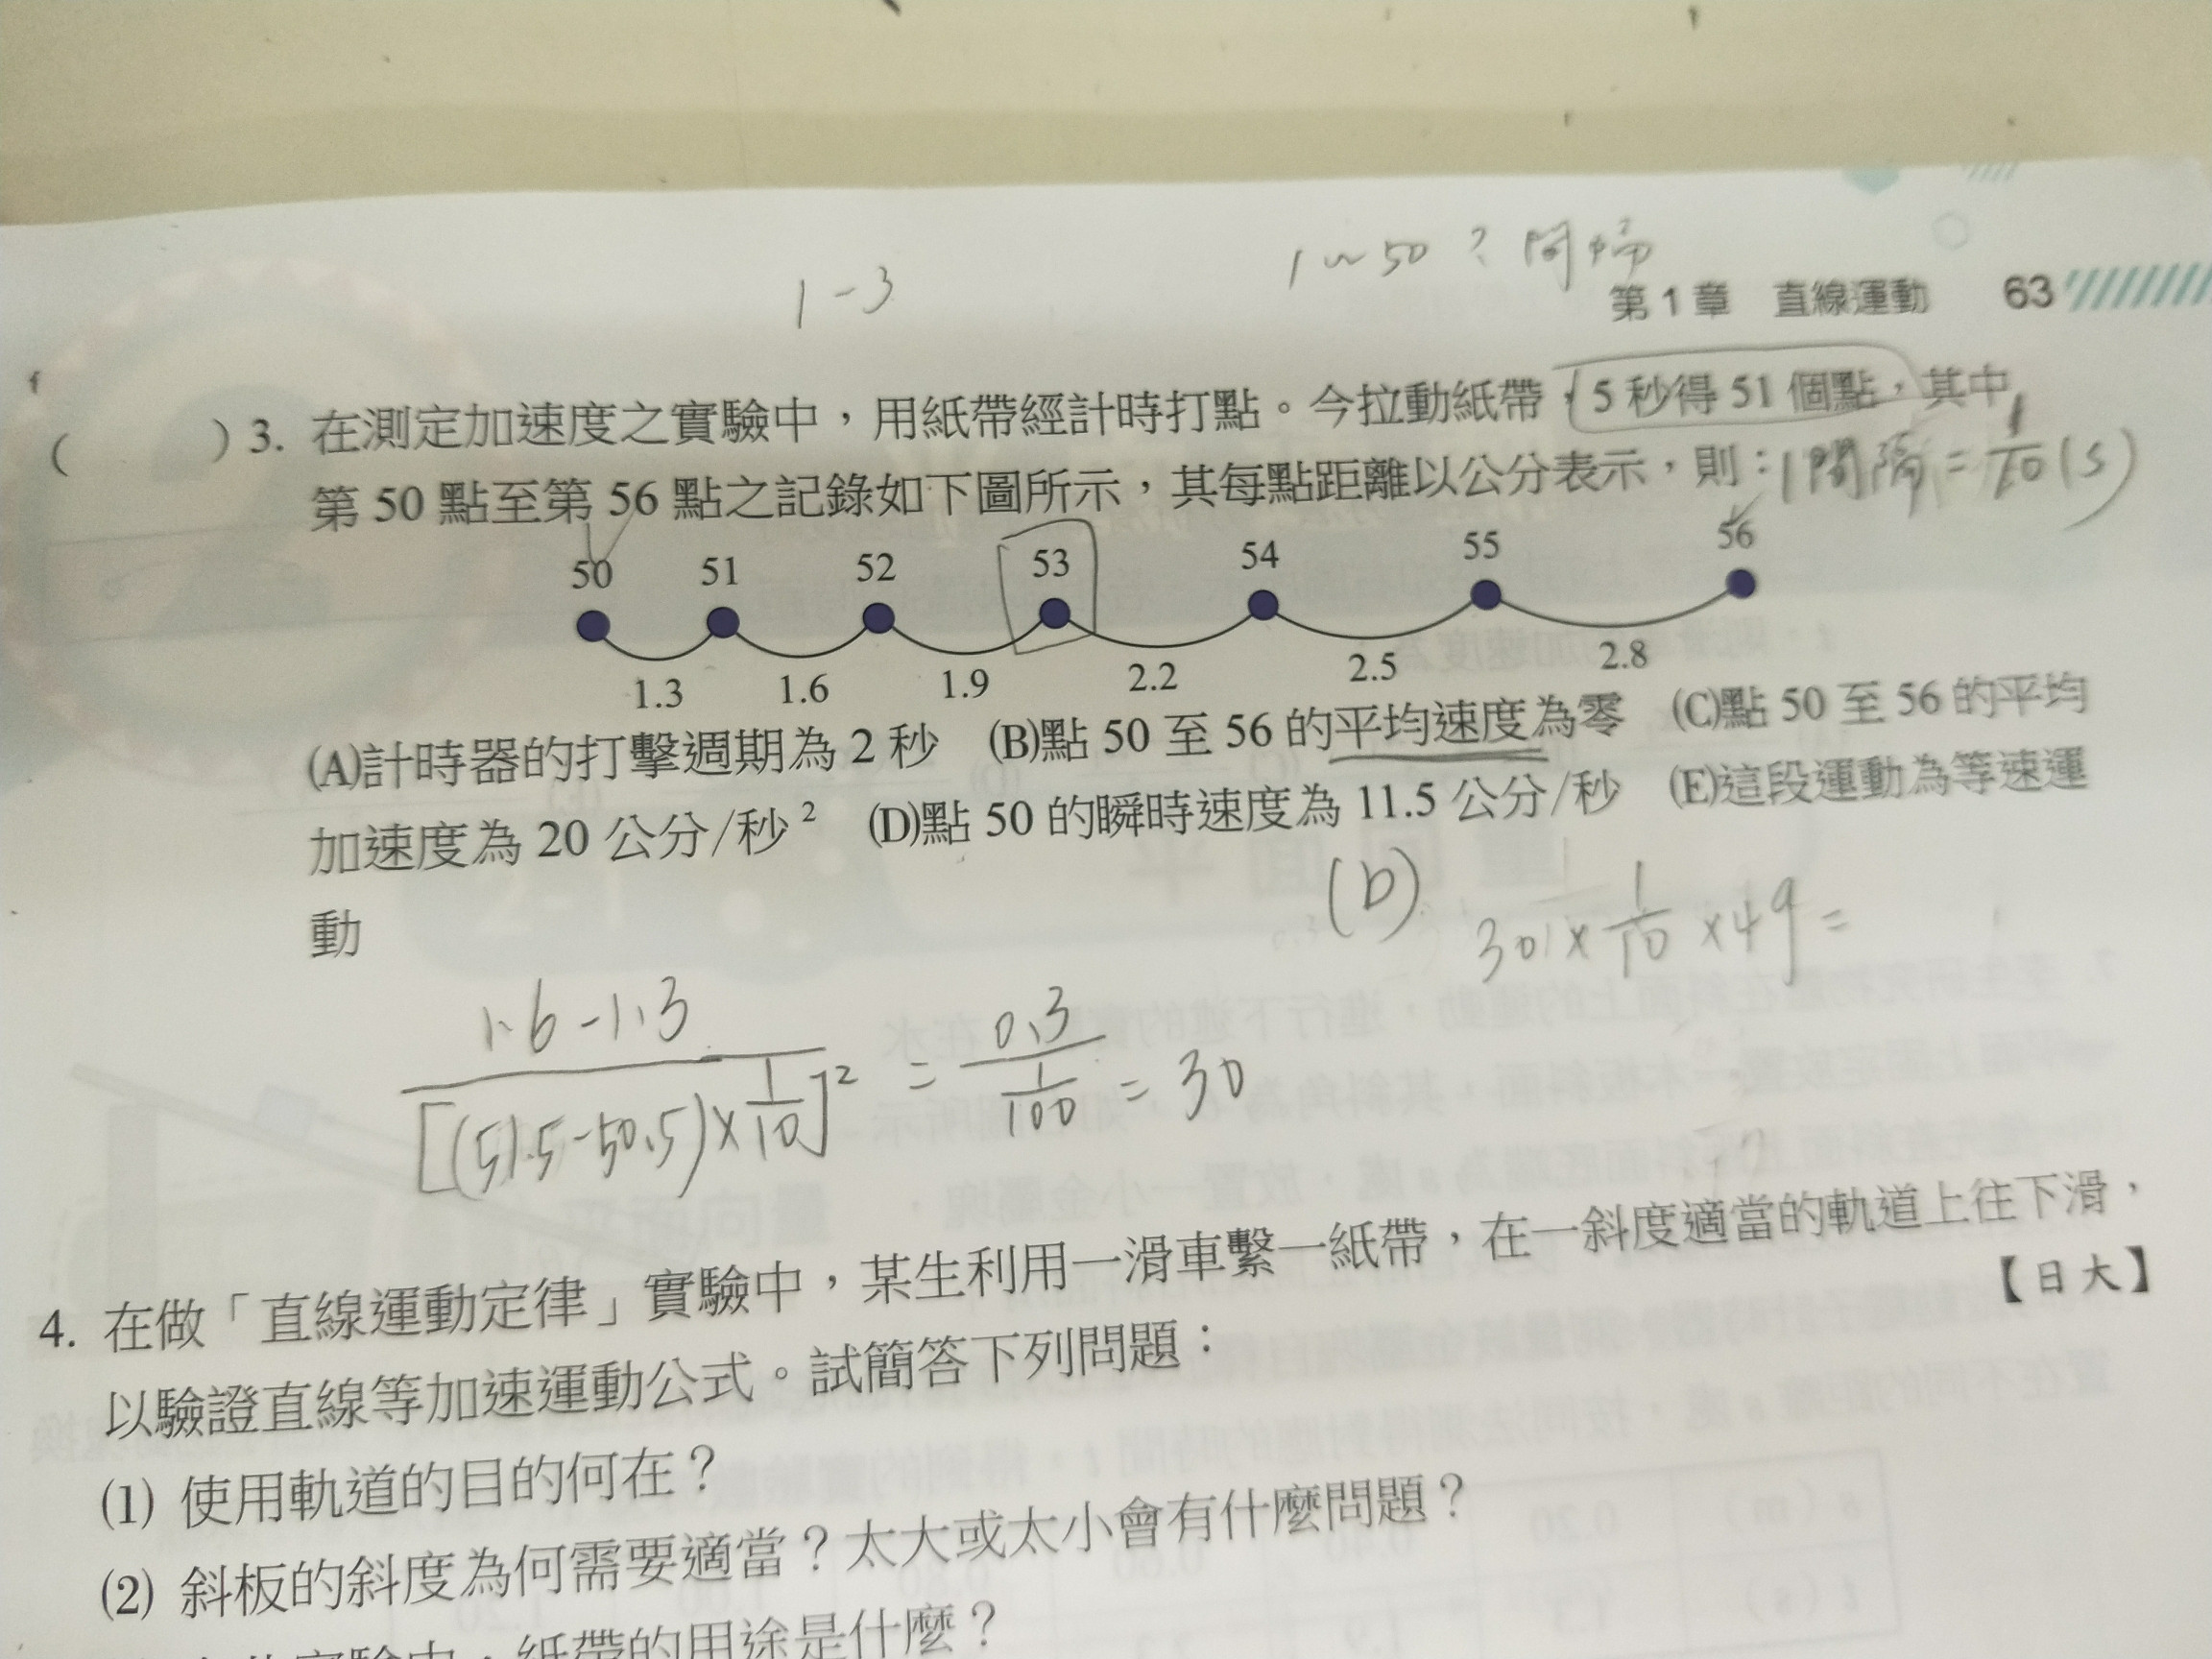 1~50？間隔
1-3
第1章 直線運動 63
( ) 3. 在測定加速度之實驗中，用紙帶經計時打點。今拉動紙帶，5秒得51個點，其中
第50點至第56點之記錄如下圖所示，其每點距離以公分表示，則：1間隔=1/10(s)
50 51 52 53 54 55 56
1.3 1.6 1.9 2.2 2.5 2.8
(A)計時器的打擊週期為2秒 (B)點50至56的平均速度為零 (C)點50至56的平均
加速度為20公分/秒² (D)點50的瞬時速度為11.5公分/秒 (E)這段運動為等速運
動
(D) 30 × 1/10 × 49 =
1.6-1.3 / [(51.5-50.5)×1/10]² = 0.3 / 1/100 = 30
4. 在做「直線運動定律」實驗中，某生利用一滑車繫一紙帶，在一斜度適當的軌道上往下滑，
以驗證直線等加速運動公式。試簡答下列問題： 【日大】
(1) 使用軌道的目的何在？
(2) 斜板的斜度為何需要適當？太大或太小會有什麼問題？
實驗中，紙帶的用途是什麼？